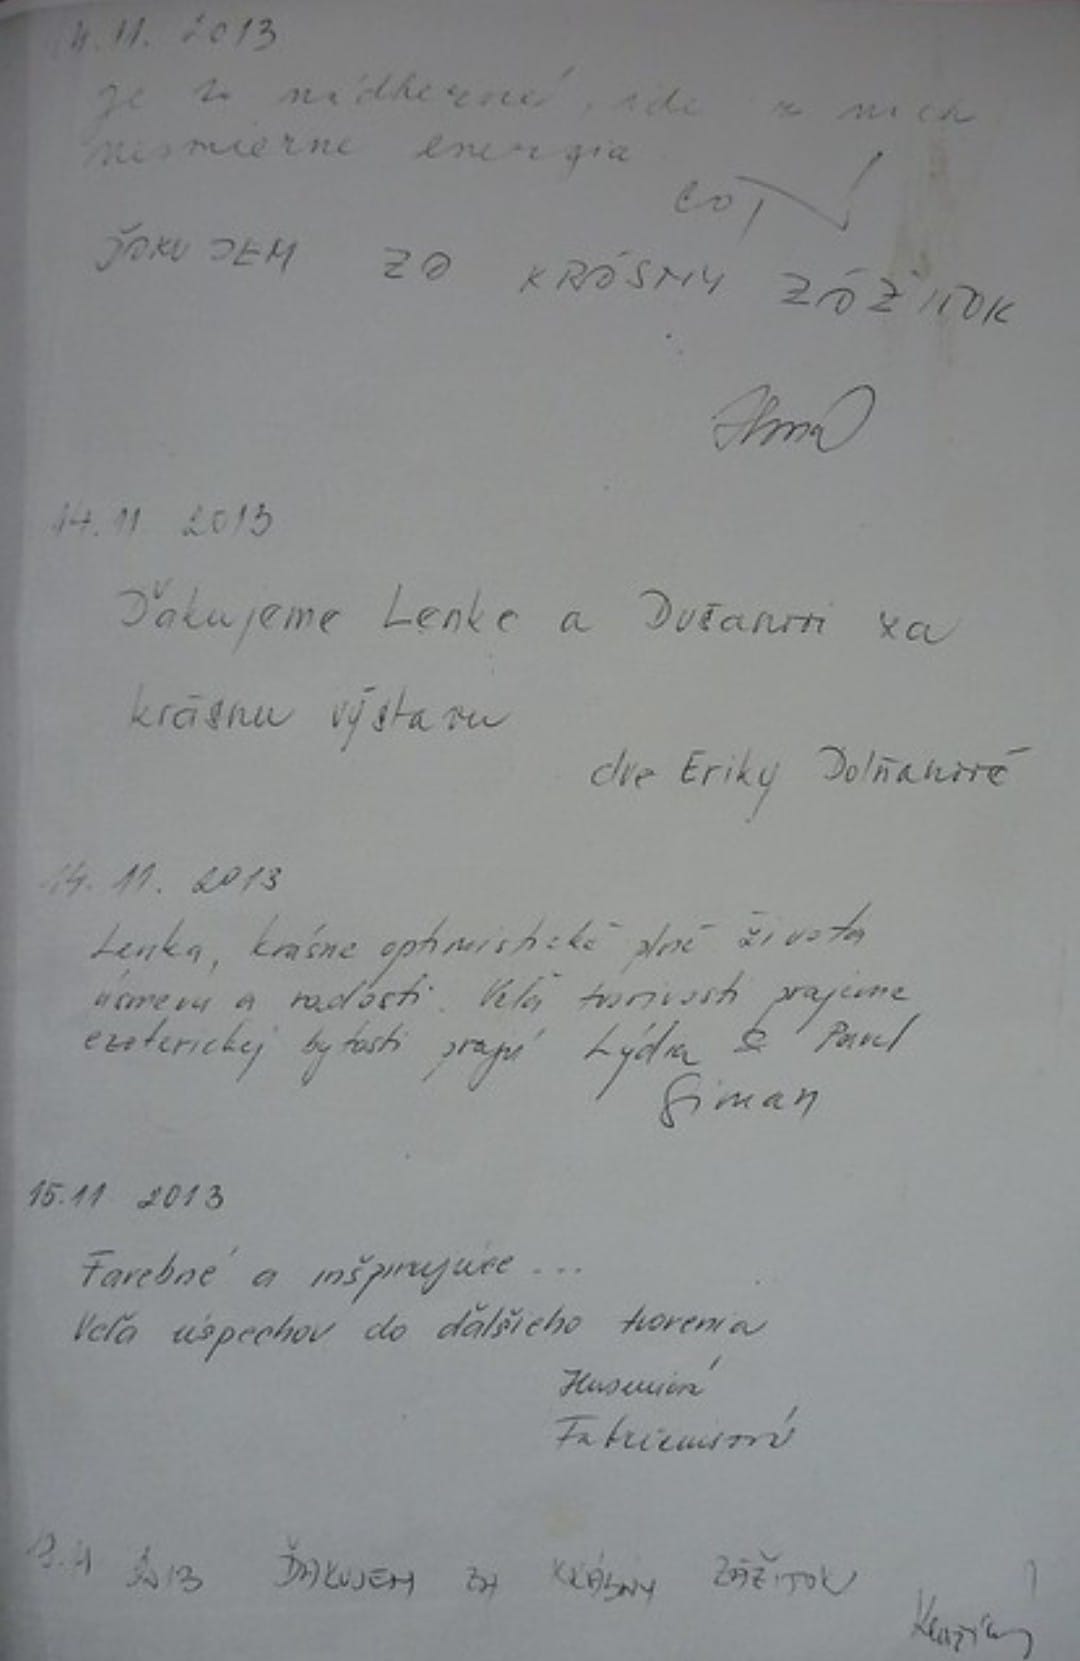 11. 2013
je to nádherné, ide z nich
nesmierne energia
ĎAKUJEM ZA KRÁSNY ZÁŽITOK
14. 11 2013
Ďakujeme Lenke a Dušanovi za
krásnu výstavu
dve Eriky Dolňanové
14. 11. 2013
Lenka, krásne optimistické plné života
úsmevu a radosti. Veľa tvorivosti prajeme
ezoterickej bytosti prajú Lýdia & Pavel
Giman
15.11 2013
Farebné a inšpirujúce ...
Veľa úspechov do ďalšieho tvorenia
2013 ĎAKUJEM ZA KRÁSNY ZÁŽITOK